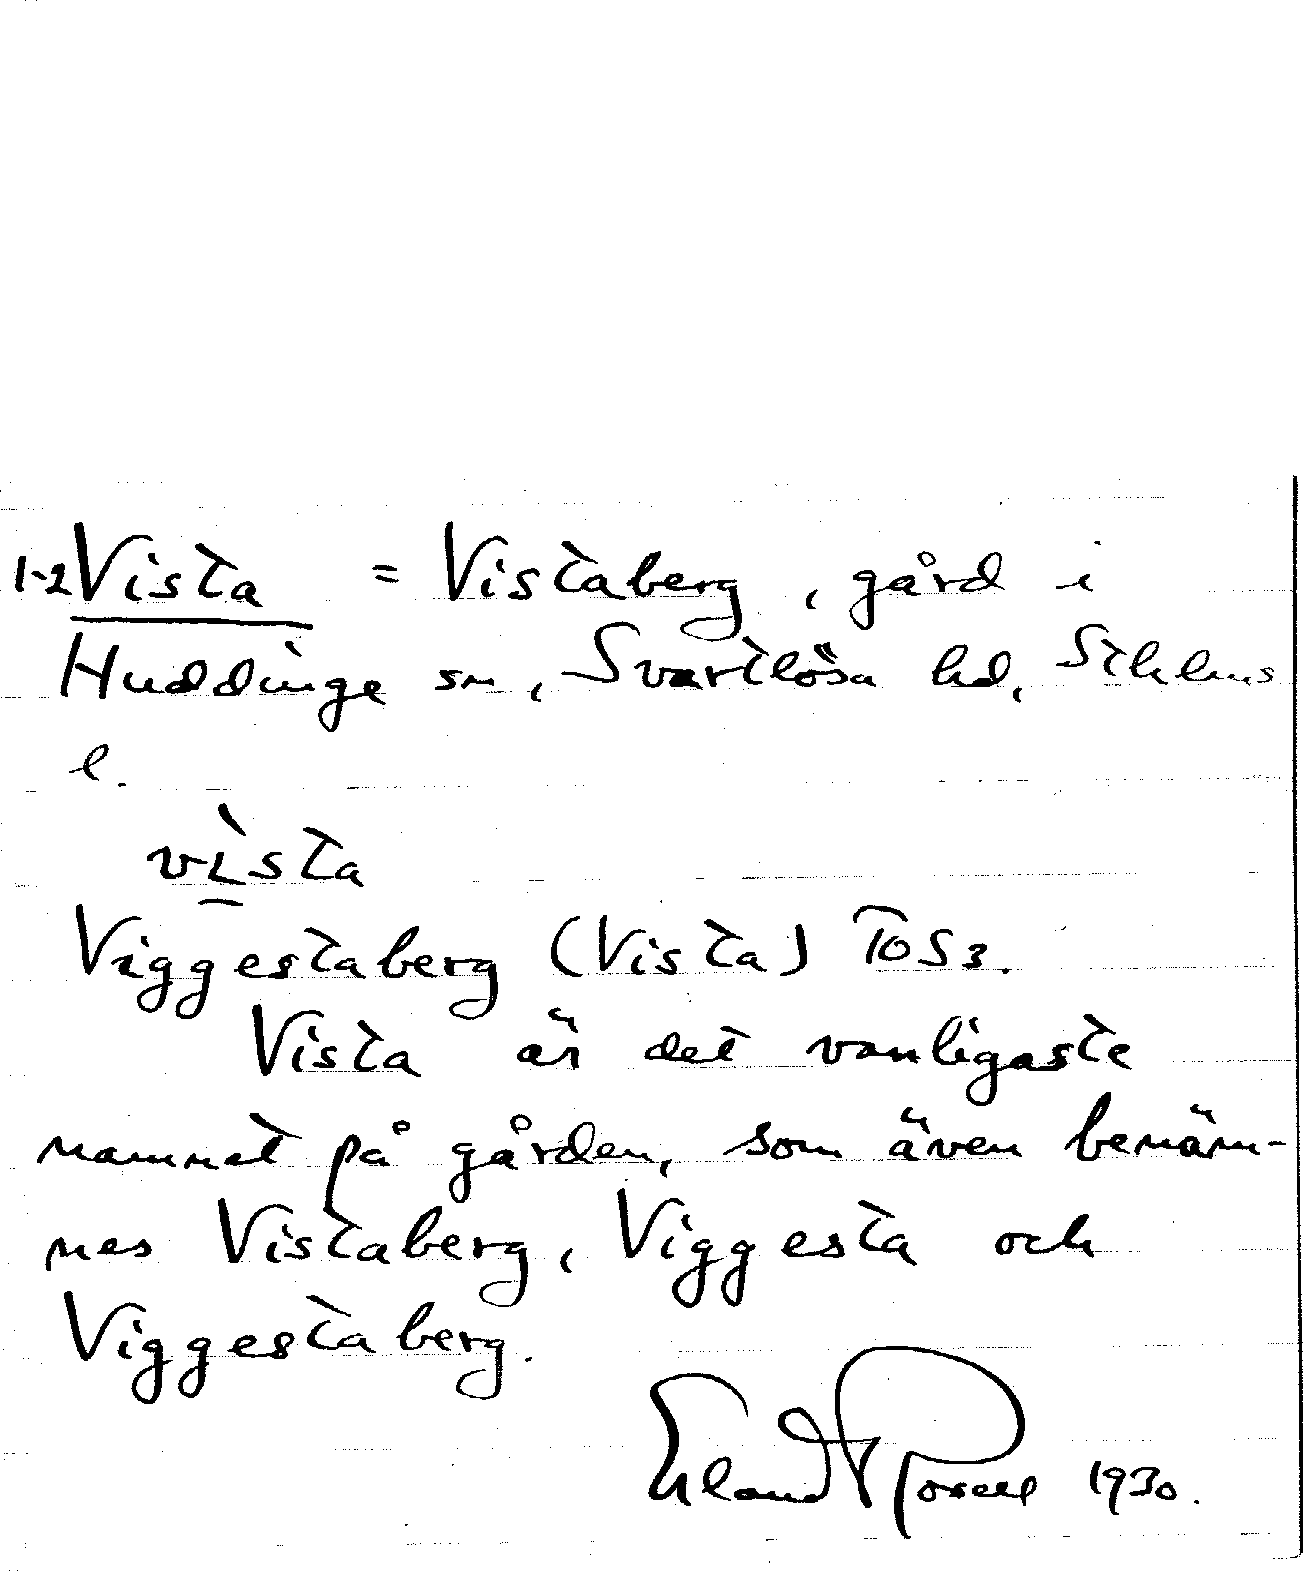 1-2 Vista = Vistaberg, gård i
Huddinge sn, Svartlösa hd, Sthlms
l.
vìsta
Viggestaberg (Vista) TOS3.
Vista är det vanligaste
namnet på gården, som även benäm-
nes Vistaberg, Viggesta och
Viggestaberg.
Erland Rosell 1930.